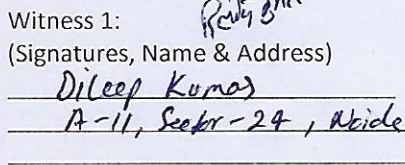 Witness 1:
(Signatures, Name & Address)
Dileep Kumar
A-11, Sector-24, Noida